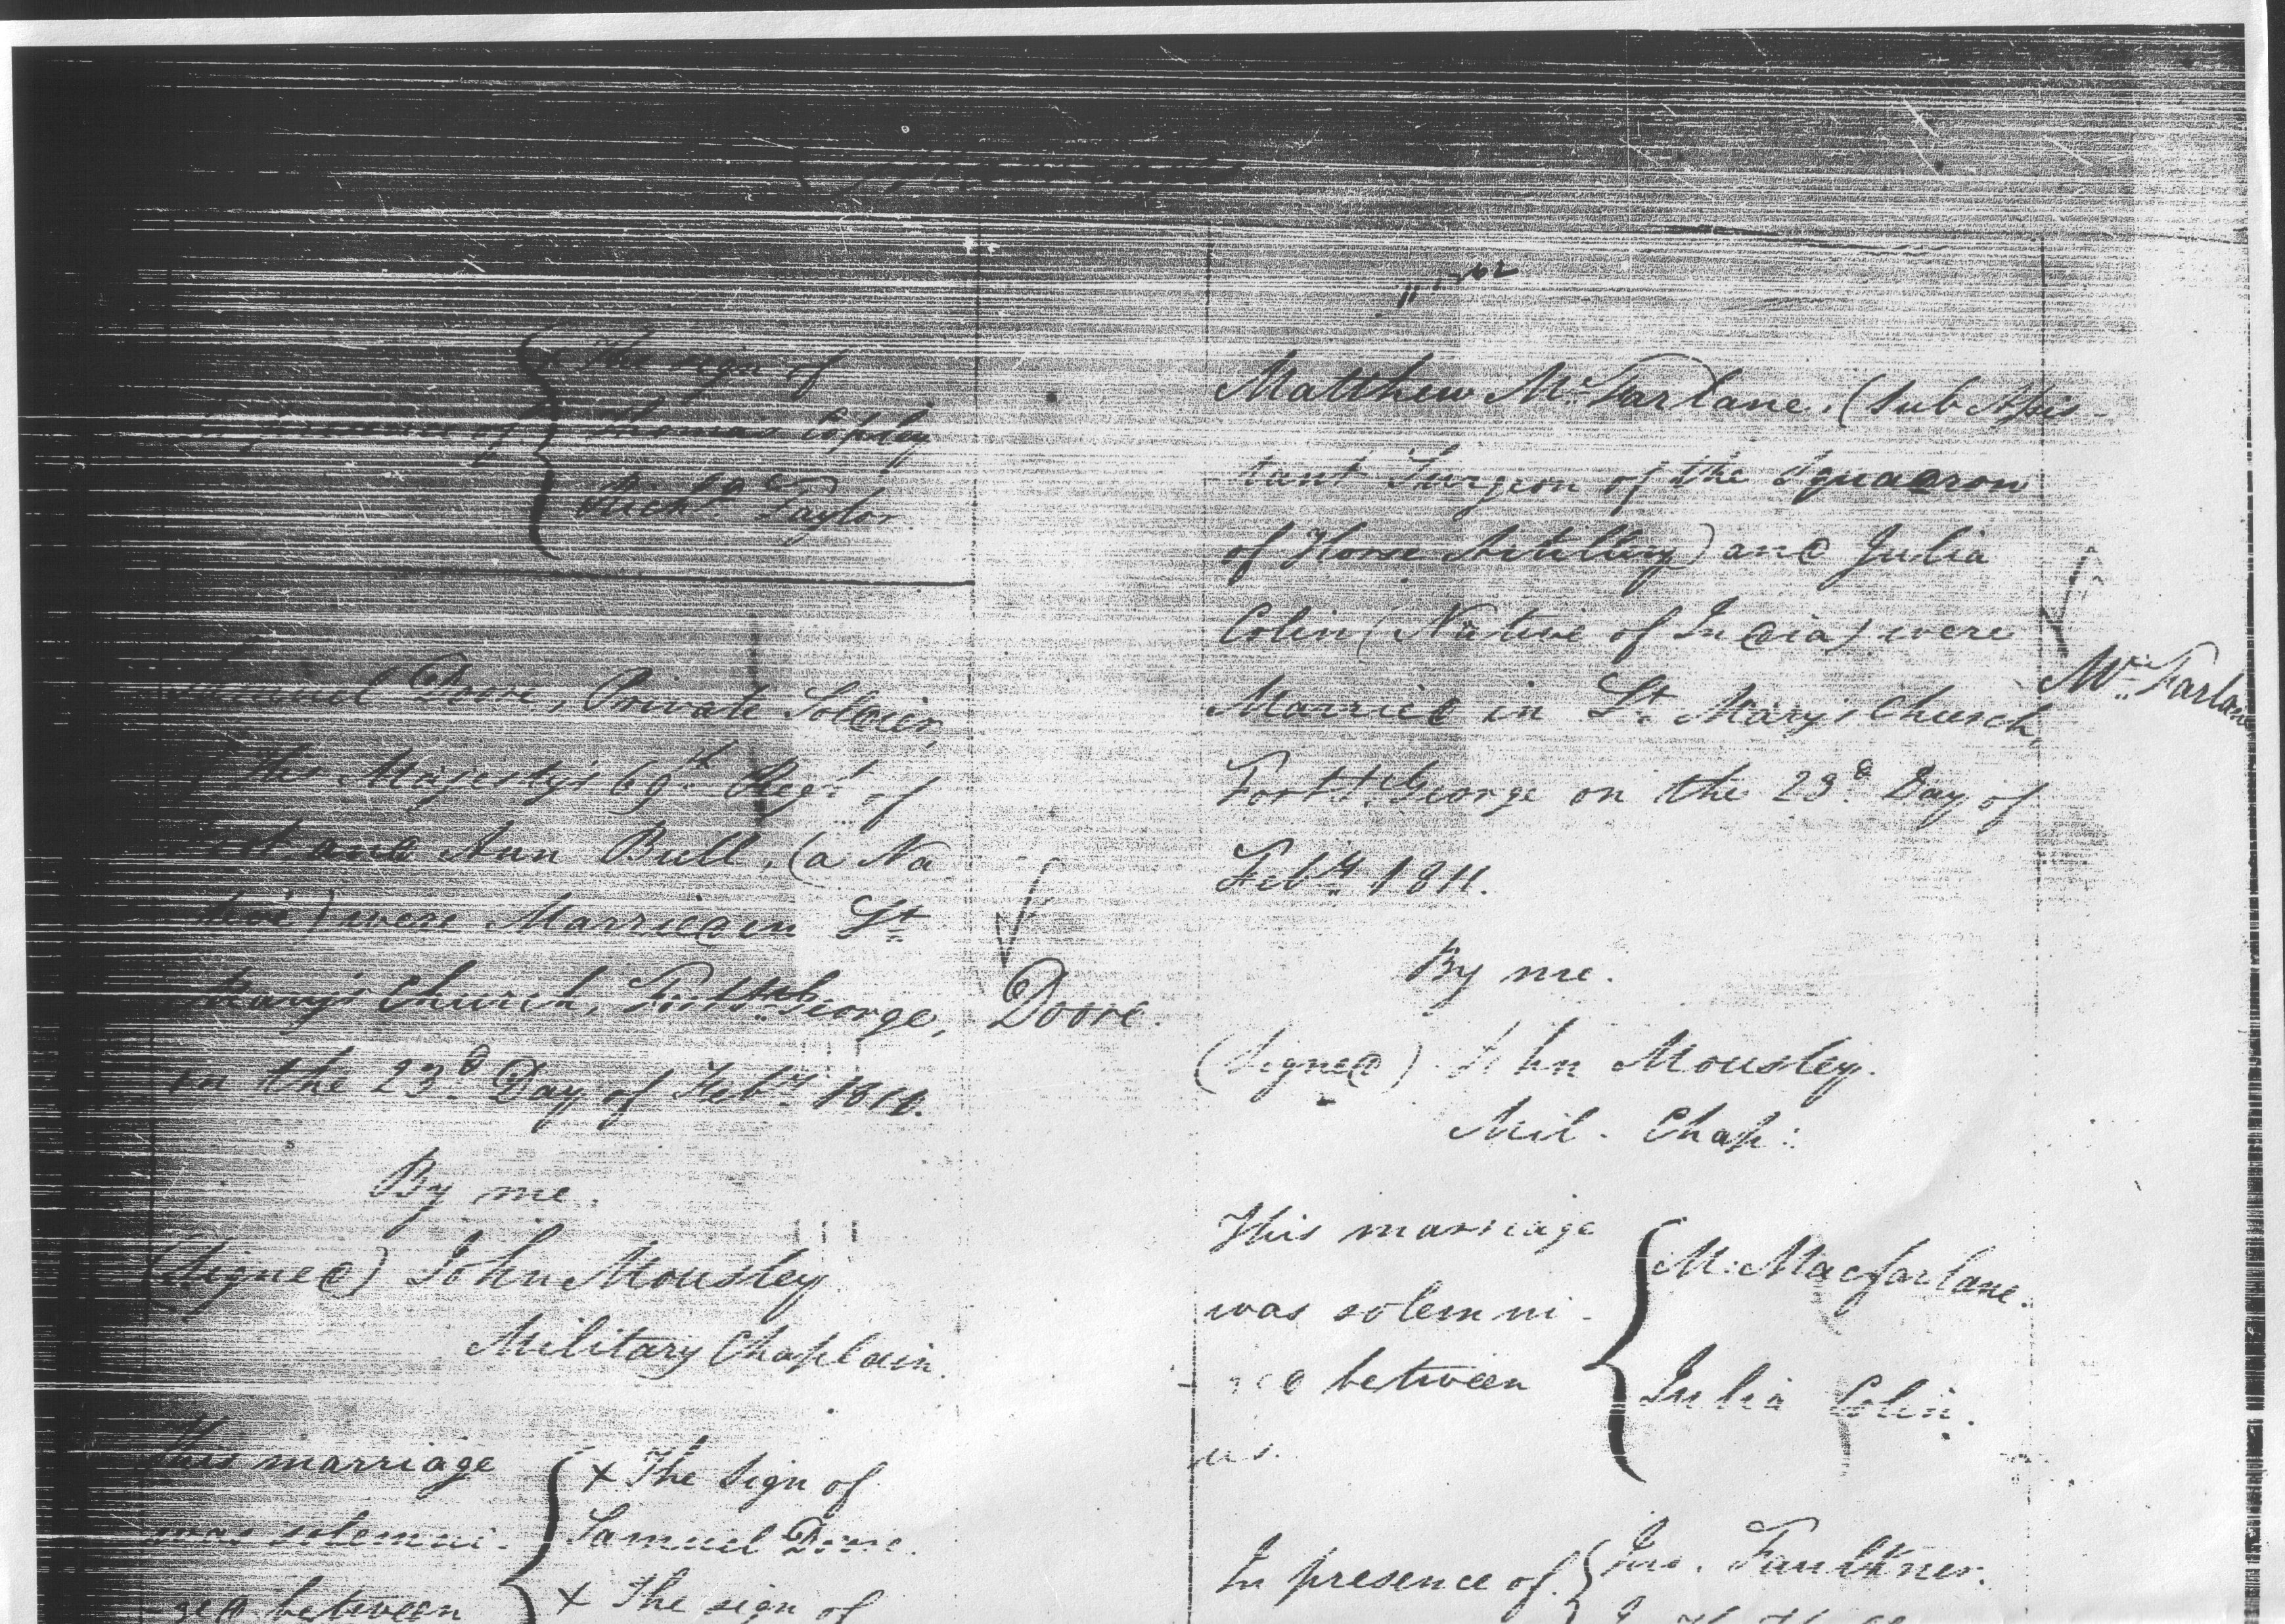 x The sign of
In presence of Thomas Copley
Richd. Taylor
Samuel Doore, Private Soldier,
His Majesty's 69th Regt. of
Foot, and Ann Bull, (a Na
tive) were Married in St.
Mary's Church, Fort St. George,
on the 23d. Day of Feby. 1811.
Doore.
By me.
(Signed) John Mousley.
Military Chaplain.
This marriage
was solemni-
zed between
x The sign of
Samuel Doore.
x The sign of
Matthew McFarlane, (Sub Assis-
tant Surgeon of the Squadron
of Horse Artillery) and Julia
Colin (Native of India) were
Married in St. Mary's Church,
Fort St. George on the 23d. Day of
Feby. 1811.
McFarlane
By me.
(Signed) John Mousley.
Mil. Chap:
This marriage
was solemni-
zed between
us.
M. Macfarlane.
Julia Colin.
In presence of Jno. Faulkner.